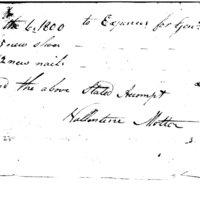 the 6 1800 to Expences for Genl
new shoes
2 new nails
the above Stated Accompt
Vallentine Motter